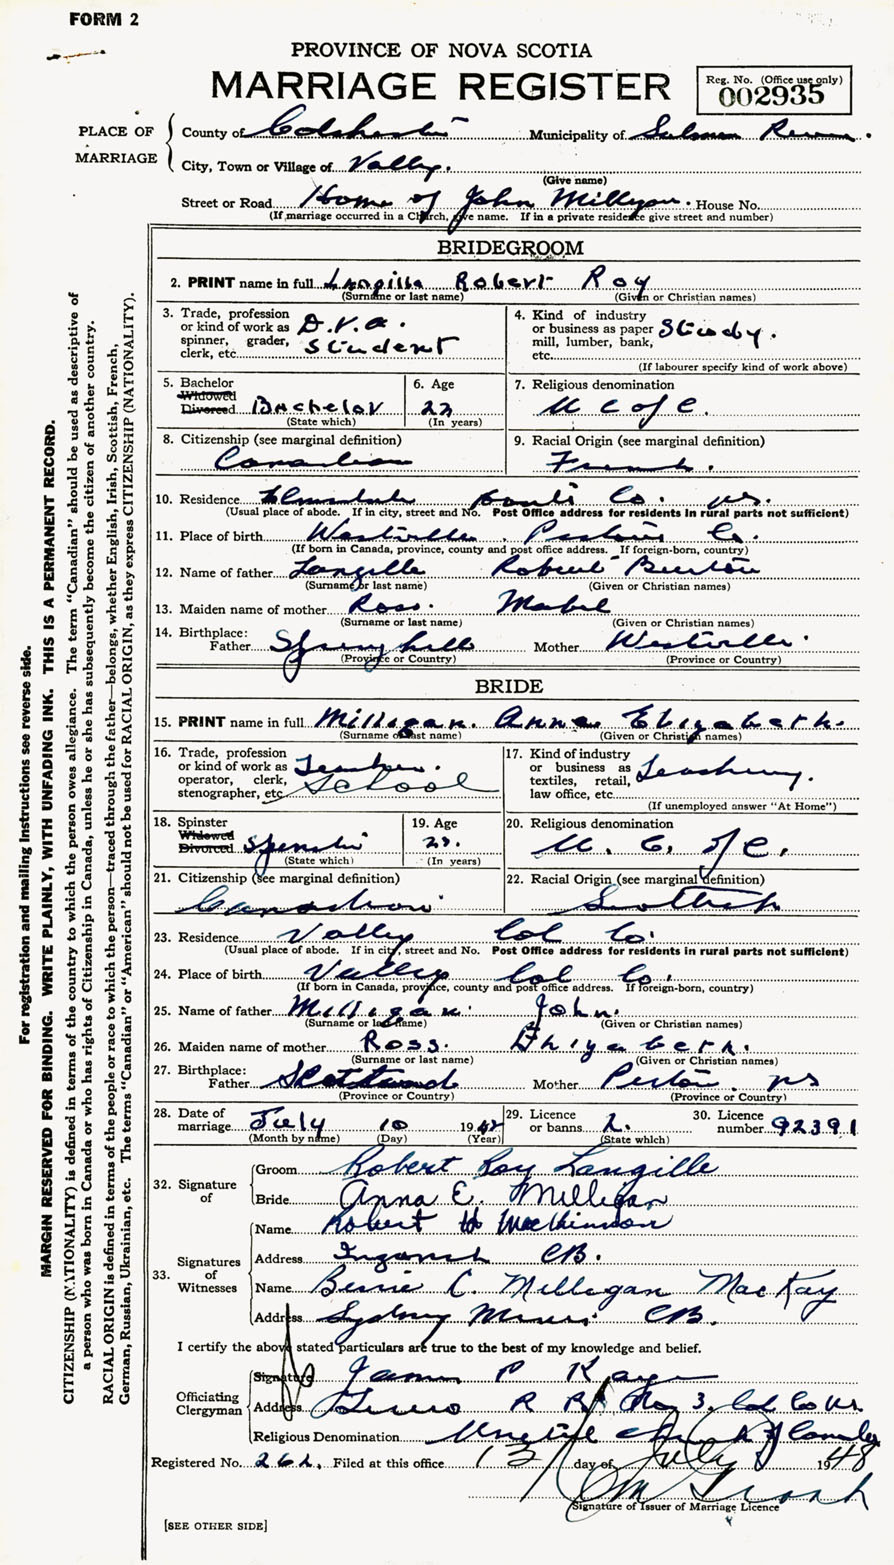 FORM 2
PROVINCE OF NOVA SCOTIA
MARRIAGE REGISTER
Reg. No. (Office use only)
002935
PLACE OF MARRIAGE
County of Colchester Municipality of Salmon River.
City, Town or Village of Valley.
(Give name)
Street or Road Home of John Milligan. House No.
(If marriage occurred in a Church, give name. If in a private residence give street and number)
BRIDEGROOM
2. PRINT name in full Langille Robert Roy
(Surname or last name) (Given or Christian names)
3. Trade, profession or kind of work as spinner, grader, clerk, etc. D.V.A. Student
4. Kind of industry or business as paper mill, lumber, bank, etc. Study.
(If labourer specify kind of work above)
5. Bachelor Widowed Divorced Bachelor
(State which)
6. Age 22
(In years)
7. Religious denomination U C of C.
8. Citizenship (see marginal definition)
Canadian
9. Racial Origin (see marginal definition)
French.
10. Residence Co. NS.
(Usual place of abode. If in city, street and No. Post Office address for residents in rural parts not sufficient)
11. Place of birth Westville. Pictou Co.
(If born in Canada, province, county and post office address. If foreign-born, country)
12. Name of father Langille Robert Burton
(Surname or last name) (Given or Christian names)
13. Maiden name of mother Ross. Mabel
(Surname or last name) (Given or Christian names)
14. Birthplace:
Father Springhill Mother Westville.
(Province or Country) (Province or Country)
BRIDE
15. PRINT name in full Milligan. Anna Elizabeth.
(Surname or last name) (Given or Christian names)
16. Trade, profession or kind of work as operator, clerk, stenographer, etc. Teacher. School
17. Kind of industry or business as textiles, retail, law office, etc. Teaching.
(If unemployed answer "At Home")
18. Spinster Widowed Divorced Spinster
(State which)
19. Age
(In years)
20. Religious denomination
U. C. of C.
21. Citizenship (see marginal definition)
Canadian
22. Racial Origin (see marginal definition)
Scottish
23. Residence Valley Col Co.
(Usual place of abode. If in city, street and number. Post Office address for residents in rural parts not sufficient)
24. Place of birth Valley Col Co.
(If born in Canada, province, county and post office address. If foreign-born, country)
25. Name of father Milligan John.
(Surname or last name) (Given or Christian names)
26. Maiden name of mother Ross. Elizabeth.
(Surname or last name) (Given or Christian names)
27. Birthplace:
Father Scotland Mother Pictou NS
(Province or Country) (Province or Country)
28. Date of marriage July 10 1948
(Month by name) (Day) (Year)
29. Licence or banns L.
(State which)
30. Licence number 92391
32. Signature of
Groom Robert Roy Langille
Bride Anna E. Milligan
33. Signatures of Witnesses
Name Robert H MacKinnon
Address Ingonish CB.
Name Bessie C. Milligan MacKay
Address Sydney Mines CB.
I certify the above stated particulars are true to the best of my knowledge and belief.
Officiating Clergyman
Signature James P Kaye
Address Truro R R No 3. Col Co NS.
Religious Denomination United Church of Canada
Registered No. 262. Filed at this office 13 day of July 1948
Signature of Issuer of Marriage Licence
[SEE OTHER SIDE]
For registration and mailing instructions see reverse side.
MARGIN RESERVED FOR BINDING. WRITE PLAINLY, WITH UNFADING INK. THIS IS A PERMANENT RECORD.
CITIZENSHIP (NATIONALITY) is defined in terms of the country to which the person owes allegiance. The term "Canadian" should be used as descriptive of
a person who was born in Canada or who has rights of Citizenship in Canada, unless he or she has subsequently become the citizen of another country.
RACIAL ORIGIN is defined in terms of the people or race to which the person—traced through the father—belongs, whether English, Irish, Scottish, French,
German, Russian, Ukrainian, etc. The terms "Canadian" or "American" should not be used for RACIAL ORIGIN, as they express CITIZENSHIP (NATIONALITY).